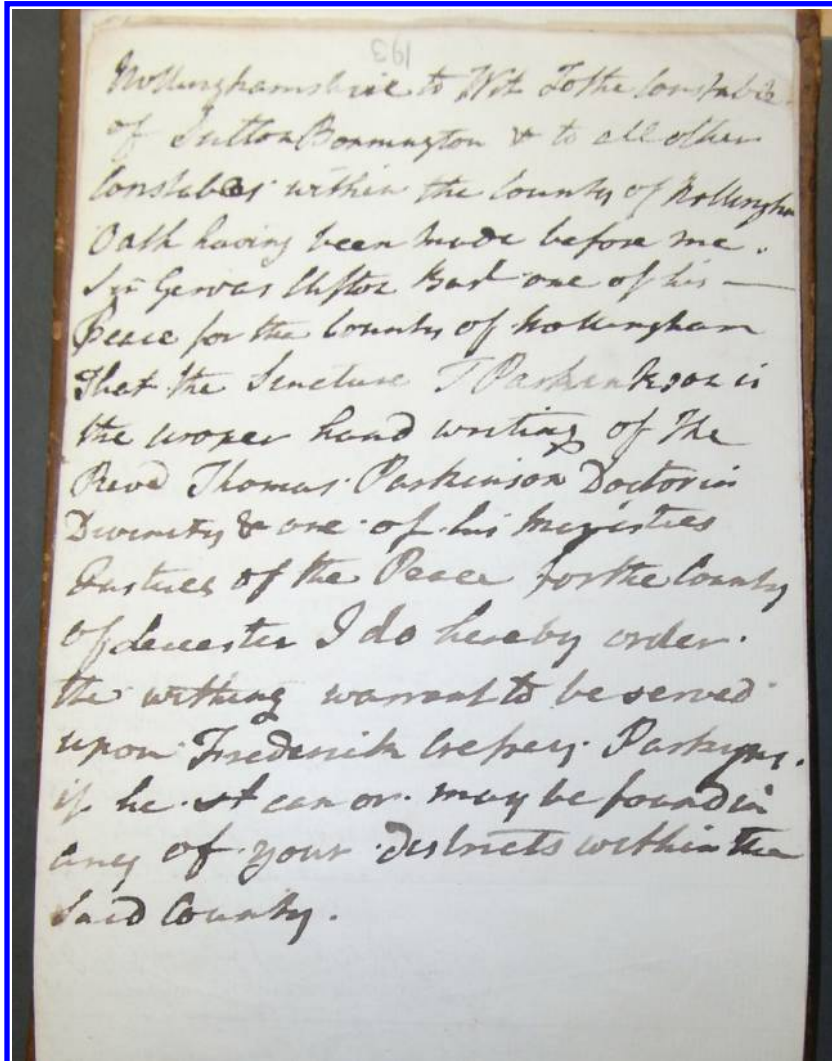 193
Nottinghamshire to Wit To the Constable
of Sutton Bonnington & to all other
Constables within the County of Nottingham
Oath having been made before me.
Sir Gervas Clifton Bart one of his —
Peace for the County of Nottingham
That the Sincture T Parkinkson is
the proper hand writing of The
Revd Thomas Parkinson Doctor in
Divinity & one of his Majesties
Justices of the Peace for the County
of Leicester I do hereby order.
the withing warrant to be served
upon Frederick Crefsey Parkyns.
if he st can or may be found in
any of your Districts within the
Said County.